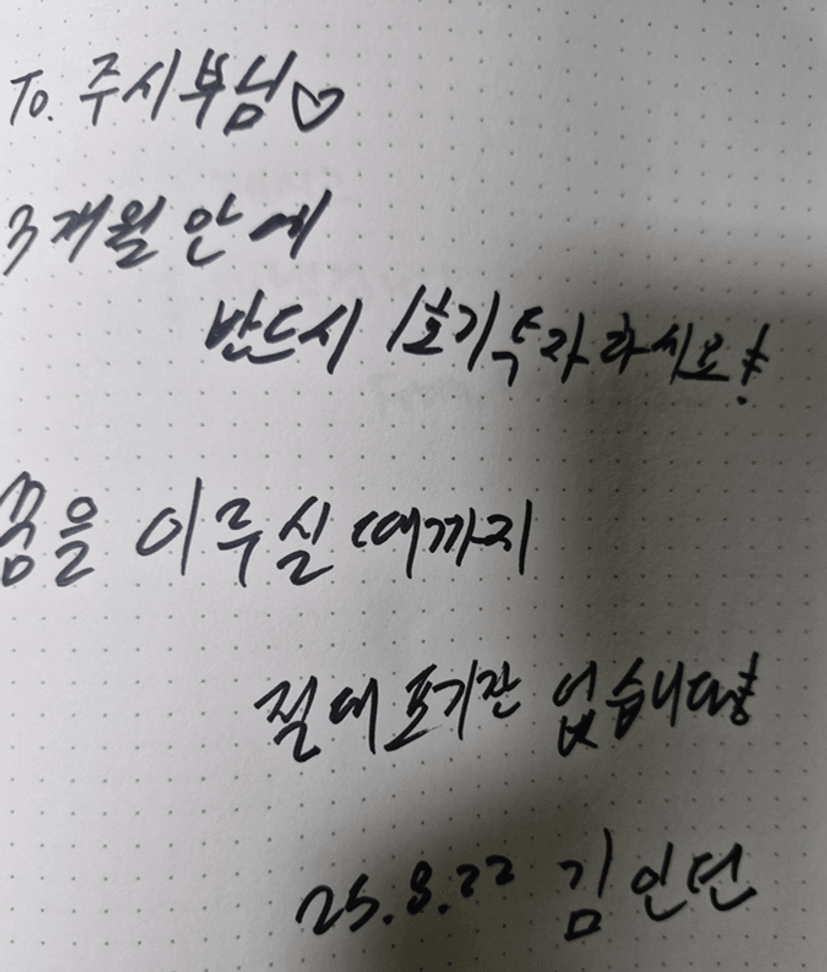 To. 주시부님♡
3개월 안에
반드시 1호기 투자하시고!
꿈을 이루실 때까지
절대 포기란 없습니다!
25.8.22 김인턴